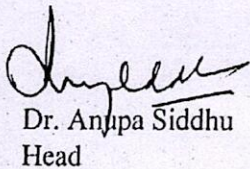 Dr. Anupa Siddhu
Head